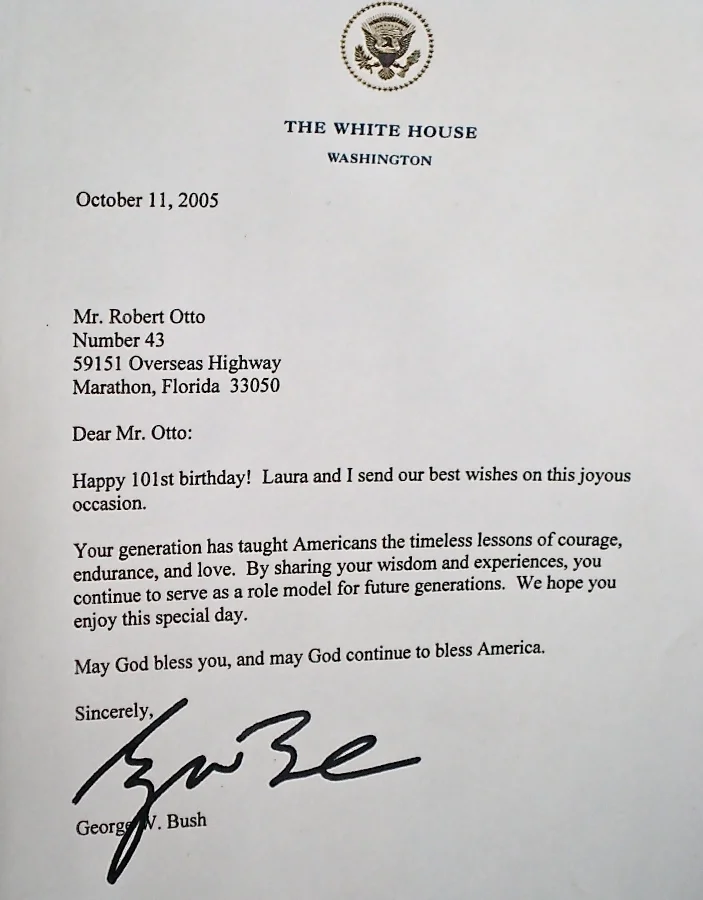 THE WHITE HOUSE
WASHINGTON
October 11, 2005
Mr. Robert Otto
Number 43
59151 Overseas Highway
Marathon, Florida 33050
Dear Mr. Otto:
Happy 101st birthday! Laura and I send our best wishes on this joyous
occasion.
Your generation has taught Americans the timeless lessons of courage,
endurance, and love. By sharing your wisdom and experiences, you
continue to serve as a role model for future generations. We hope you
enjoy this special day.
May God bless you, and may God continue to bless America.
Sincerely,
George W. Bush